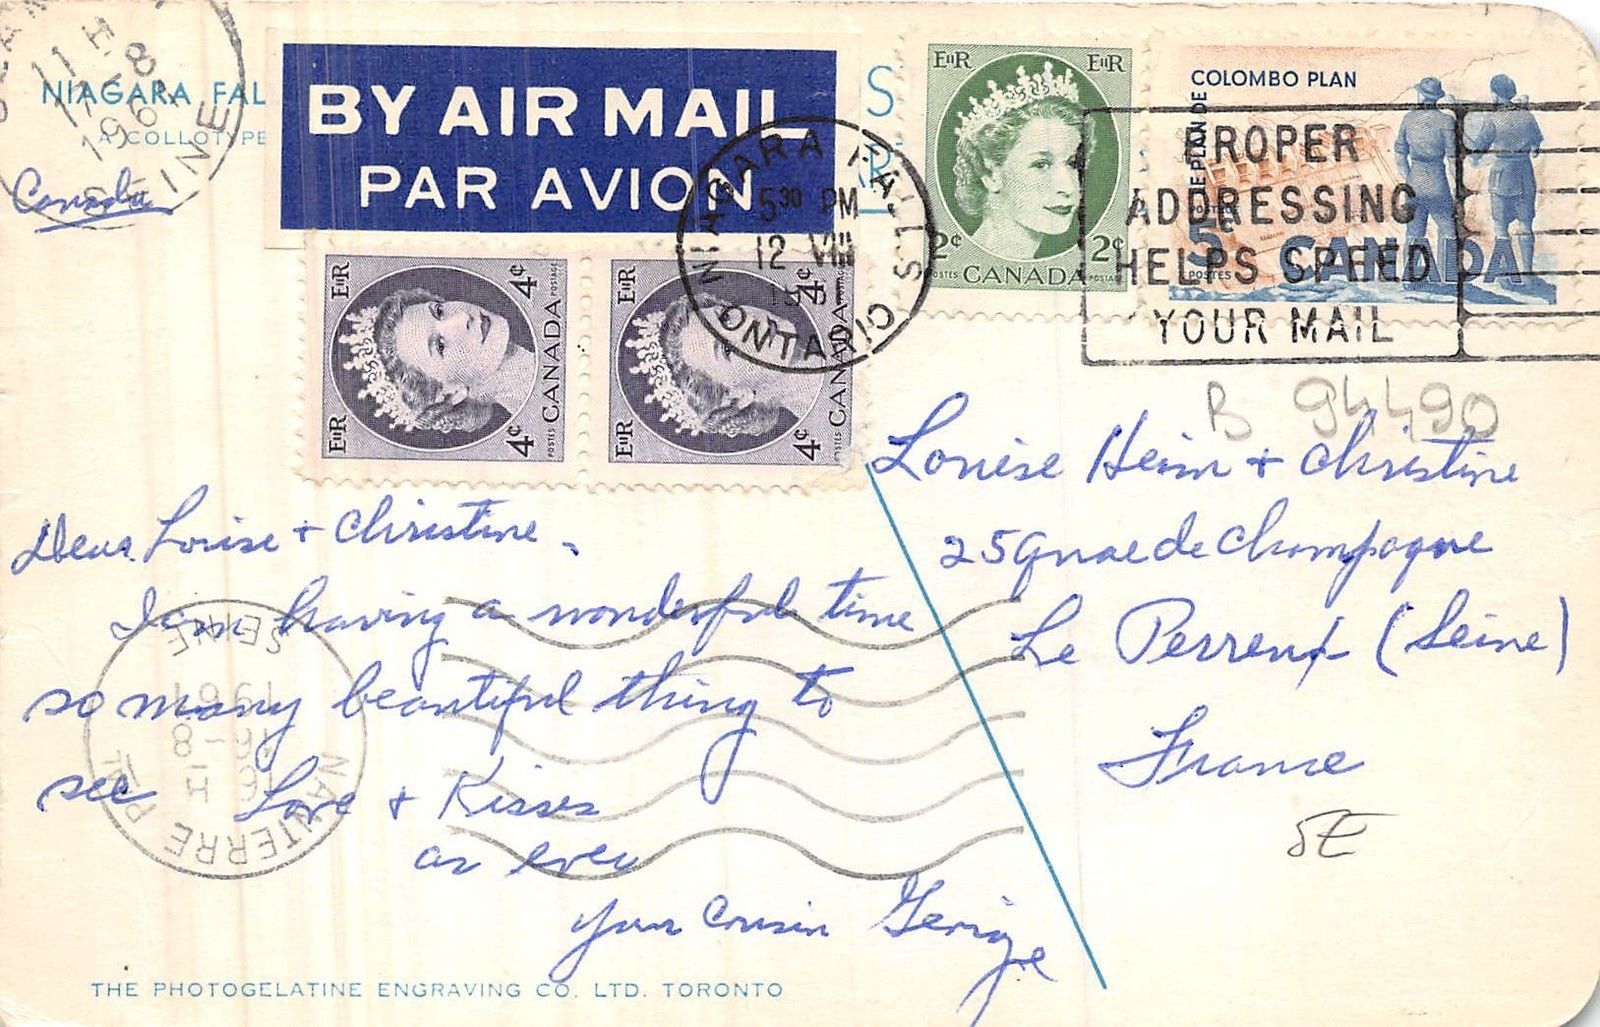 NIAGARA FAL
A COLLOTYPE
Canada
SEINE
BY AIR MAIL
PAR AVION
EIIR EIIR
2¢ 2¢
POSTES CANADA POSTAGE
COLOMBO PLAN
PLAN DE
5¢
POSTES
CANADA
EIIR 4¢
POSTES CANADA POSTAGE
EIIR 4¢
EIIR 4¢
POSTES CANADA POSTAGE
EIIR 4¢
NIAGARA FALLS
5 30 PM
12 VIII
ONTARIO
PROPER
ADDRESSING
HELPS SPEED
YOUR MAIL
B 94490
Louise Heim + Christine
25 quai de Champagne
Le Perreux (Seine)
France
Dear Louise + Christine,
I am having a wonderful time
so many beautiful thing to
see Love + Kisses
as ever
your cousin George
NANTERRE PPAL
16 H
16-8
1961
SEINE
THE PHOTOGELATINE ENGRAVING CO. LTD. TORONTO